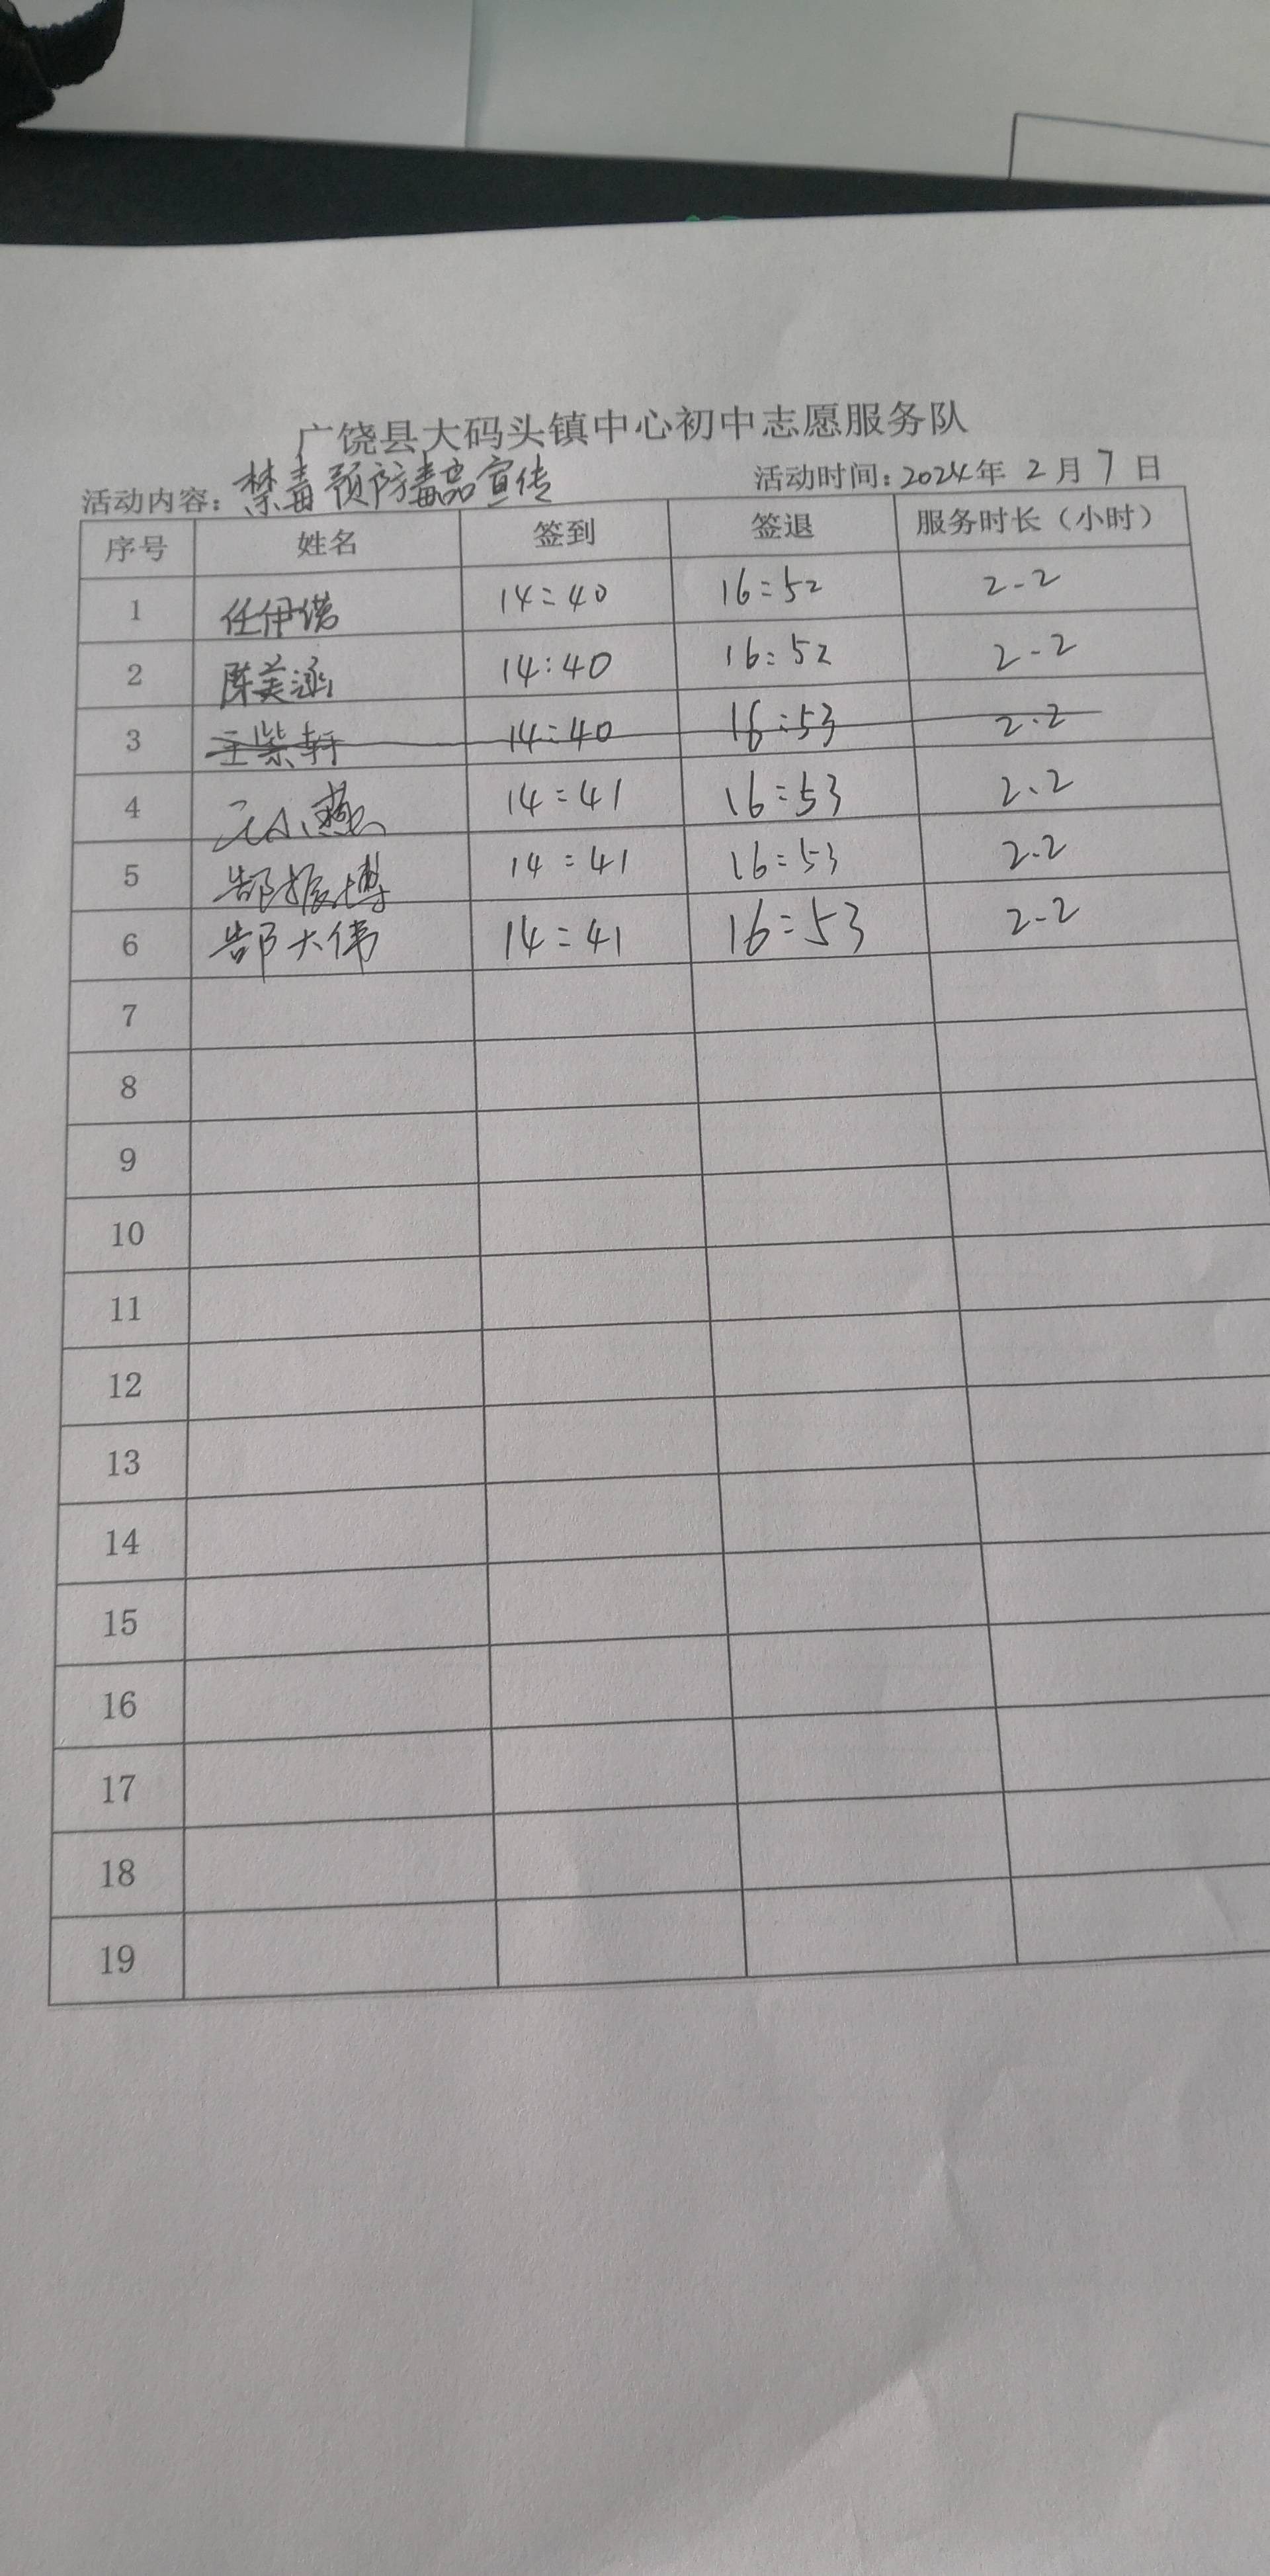 广饶县大码头镇中心初中志愿服务队
活动内容：禁毒预防毒品宣传 活动时间：2024年 2月 7日
序号 姓名 签到 签退 服务时长（小时）
1 任伊诺 14:40 16:52 2.2
2 陈美涵 14:40 16:52 2.2
3 王紫轩 14:40 16:53 2.2
4 14:41 16:53 2.2
5 郜振博 14:41 16:53 2.2
6 郜大伟 14:41 16:53 2.2
7
8
9
10
11
12
13
14
15
16
17
18
19